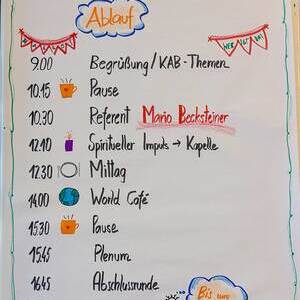 Ablauf
WER IST DA?
9.00 Begrüßung/KAB-Themen
10.15 Pause
10.30 Referent Mario Becksteiner
12.10 Spiritueller Impuls → Kapelle
12.30 Mittag
14.00 World Café
15.30 Pause
15.45 Plenum
16.45 Abschlussrunde
Bis